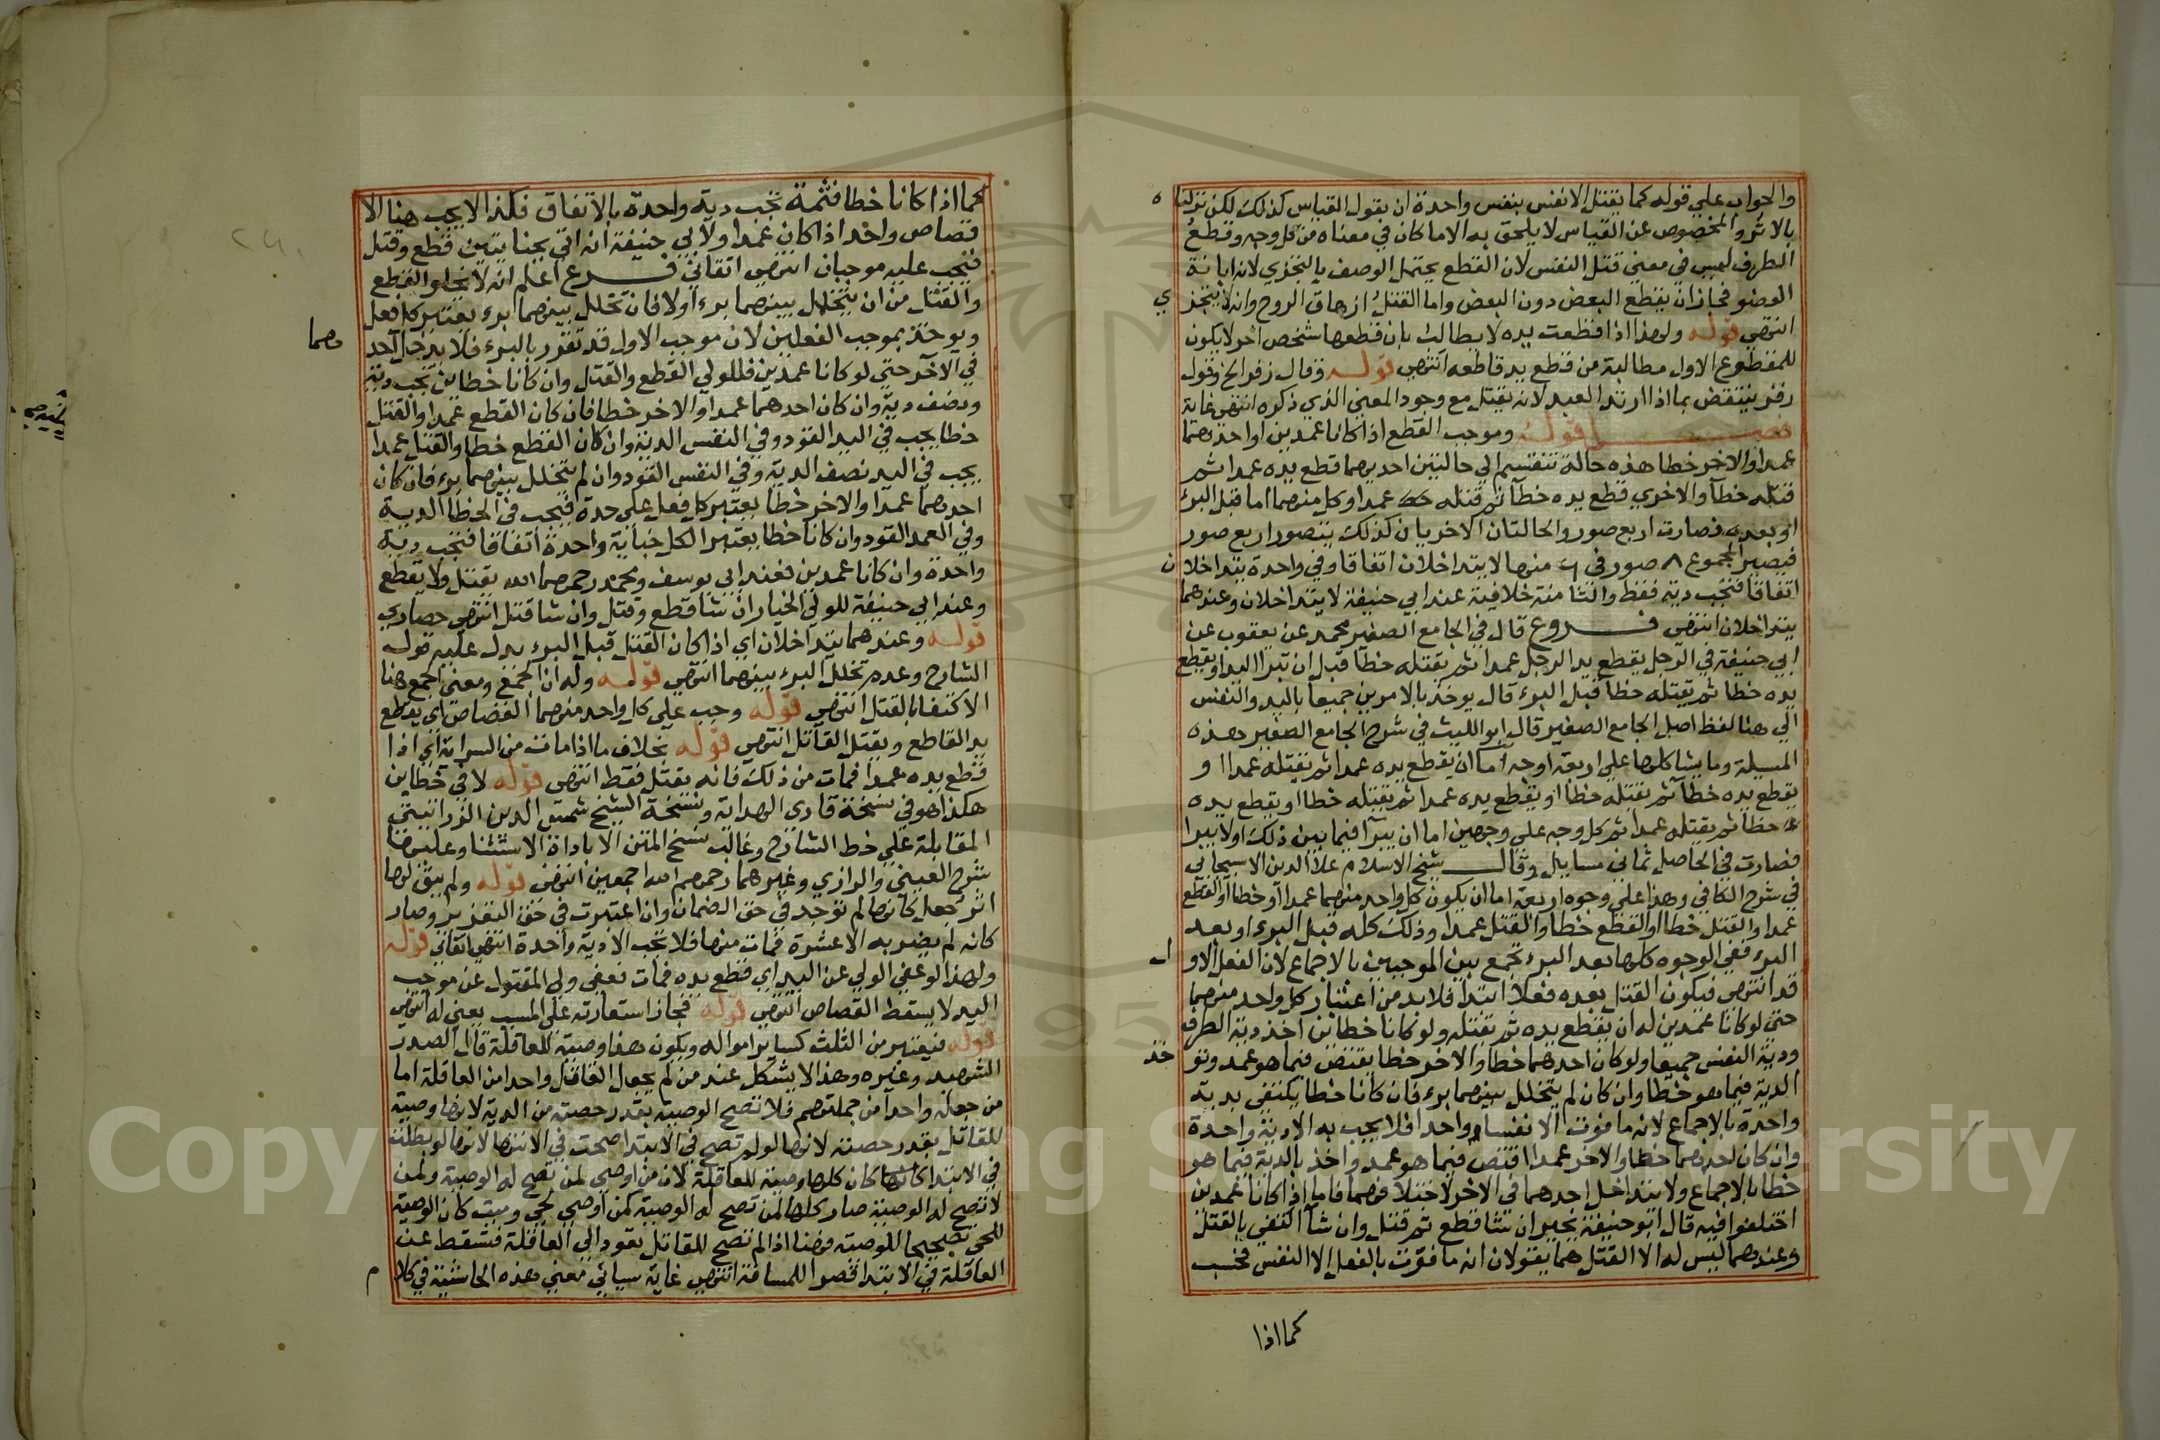 والجواب علي قوله كما يقتل الانفس بنفس واحدة ان يقول القياس كذلك لكن تركناه
بالاثر والمخصوص عن القياس لا يلحق به الا ما كان في معناه من كل وجه وقطع
الطرف ليس في معني قتل النفس لان القطع يحتمل الوصف بالتجزي لانه ابانة
العضو فجاز ان يقطع البعض دون البعض واما القتل ازهاق الروح وانه لا يتجزي
انتهي قوله ولهذا اذا قطعت يده لا يطالب بان قطعها شخص اخر لا يكون
للمقطوع الاول مطالبة من قطع يد قاطعه انتهي قوله وقال زفر الخ وقول
زفر ينتقض بما اذا ارتد العبد لانه يقتل مع وجود المعني الذي ذكره انتهي غاية
فصل قوله وموجب القطع اذا كانا عمدين او احدهما
عمدا والاخر خطا هذه حالة تنقسم الي حالتين احديهما قطع يده عمدا ثم
قتله خطا والاخري قطع يده خطا ثم قتله عمدا وكل منهما اما قبل البرء
او بعده فصارت اربع صور والحالتان الاخريان كذلك يتصور اربع صور
فيصير المجموع ٨ صور في ٦ منها لا يتداخلان اتفاقا وفي واحدة يتداخلان
اتفاقا فتجب دية فقط والثامنة خلافية عند ابي حنيفة لا يتداخلان وعندهما
يتداخلان انتهي فروع قال في الجامع الصغير محمد عن يعقوب عن
ابي حنيفة في الرجل يقطع يد الرجل عمدا ثم يقتله خطا قبل ان تبرا اليد او يقطع
يده خطا ثم يقتله خطا قبل البرء قال يوخذ بالامرين جميعا باليد والنفس
الي هنا لفظ اصل الجامع الصغير قال ابو الليث في شرح الجامع الصغير هذه
المسيلة وما يشاكلها علي اربعة اوجه اما ان يقطع يده عمدا ثم يقتله عمدا او
يقطع يده خطا ثم يقتله خطا او يقطع يده عمدا ثم يقتله خطا او يقطع يده
خطا ثم يقتله عمدا ثم كل وجه علي وجهين اما ان يبرا فيما بين ذلك اولا يبرا
فصارت في الحاصل ثماني مسايل وقال شيخ الاسلام علاء الدين الاسبيجابي
في شرح الكافي وهذا علي وجوه اربعة اما ان يكون كل واحد منهما عمدا او خطا او القطع
عمدا والقتل خطا او القطع خطا والقتل عمدا وذلك كله قبل البرء او بعد
البرء ففي الوجوه كلها بعد البرء تجمع بين الموجبين بالاجماع لان الفعل الاول
قد انتهي فيكون القتل بعده فعلا ابتدا فلا بد من اعتبار كل واحد منهما
حتي لو كانا عمدين له ان يقطع يده ثم يقتله ولو كانا خطاين اخذ دية الطرف
ودية النفس جميعا ولو كان احدهما خطا والاخر خطا يقتص فيما هو عمد وتوخذ
الدية فيما هو خطا وان كان لم يتخلل بينهما برء فان كانا خطا يكتفي بدية
واحدة بالاجماع لانه ما فوت الا نفسا واحدا فلا يجب به الا دية واحدة
وان كان احدهما خطا والاخر عمدا اقتص فيما هو عمد واخذ بالدية فيما هو
خطا بالاجماع ولا يتداخل احدهما في الاخر لاختلافهما فاما اذا كانا عمدين
اختلفوا فيه قال ابو حنيفة يخير ان شا قطع ثم قتل وان شا اكتفي بالقتل
وعندهما ليس له الا القتل هما يقولان انه ما فوت بالفعل الا النفس فحسب
كما اذا
كما اذا كانا خطا فثمة تجب دية واحدة بالاتفاق فكذا لا يجب هنا الا
قصاص واحد اذا كان عمدا ولابي حنيفة انه اتي بجنايتين قطع وقتل
فيجب عليه موجبان انتهي اتقاني فرع اعلم انه لا يخلو القطع
والقتل من ان يتخلل بينهما برء اولا فان تخلل بينهما برء يعتبر كل فعل
ويوخذ بموجب الفعلين لان موجب الاول قد تقرر بالبرء فلا يدخل احدهما
في الآخر حتي لو كانا عمدين فللولي القطع والقتل وان كانا خطاين تجب دية
ونصف دية وان كان احدهما عمدا والاخر خطا فان كان القطع عمدا والقتل
خطا يجب في اليد القود وفي النفس الدية وان كان القطع خطا والقتل عمدا
يجب في اليد نصف الدية وفي النفس القود وان لم يتخلل بينهما برء فان كان
احدهما عمدا والاخر خطا يعتبر كل فعل علي حدة فيجب في الخطا الدية
وفي العمد القود وان كانا خطا يعتبر الكل جناية واحدة اتفاقا فتجب دية
واحدة وان كانا عمدين فعند ابي يوسف ومحمد رحمهما الله يقتل ولا يقطع
وعند ابي حنيفة للولي الخيار ان شا قطع وقتل وان شا قتل انتهي
قوله وعندهما يتداخلان اي اذا كان القتل قبل البرء يدل عليه قوله
الشارح وعدم تخلل البرء بينهما انتهي قوله وله ان الجمع ومعني الجمع هنا
الاكتفا بالقتل انتهي قوله وجب علي كل واحد منهما القصاص اي يقطع
يد القاطع ويقتل القاتل انتهي قوله بخلاف ما اذا مات من السراية اي اذا
قطع يده عمدا فمات من ذلك فانه يقتل فقط انتهي قوله لا في خطاين
هكذا هو في نسخة قاري الهداية ونسخة الشيخ شمس الدين الزراتيتي
المقابلة علي خط الشارح وغالب نسخ المتن الا باداة الاستثنا وعليها
شرح العيني والرازي وغيرهما رحمهم الله اجمعين انتهي قوله ولم يبق لها
اثر جعل كانها لم توجد في حق الضمان وان اعتبرت في حق التعزير وصار
كانه لم يضربه الا عشرة فمات منها فلا تجب الا دية واحدة انتهي اتقاني قوله
ولهذا لو عفي الولي عن اليد اي قطع يده فمات فعفي ولي المقتول عن موجب
اليد لا يسقط القصاص انتهي قوله فجاز استعارته علي المسبب يعني له انتهي
قوله فيعتبر من الثلث كساير امواله ويكون هذا وصية للعاقلة قال الصدر
الشهيد وغيره وهذا لا يشكل عند من لم يجعل القاتل واحدا من العاقلة اما
من جعله واحدا من جملتهم فلا تصح الوصية بقدر حصته من الدية لانها وصية
للقاتل بقدر حصته لانها لو لم تصح في الابتدا صحت في الانتها لانها لو بطلت
في الابتدا كانها كان كلها وصية للعاقلة لان من اوصي لمن تصح له الوصية ولمن
لا تصح له الوصية صار كلها لمن تصح له الوصية كمن اوصي لحي وميت كان الوصية
للحي تصحيحا للوصية فهنا اذا لم تصح للقاتل يعود الي العاقلة فتسقط عن
العاقلة في الابتدا قصرا للمسافة انتهي غاية سياتي معني هذه الحاشية في كلام
Copy ng S rsity
95